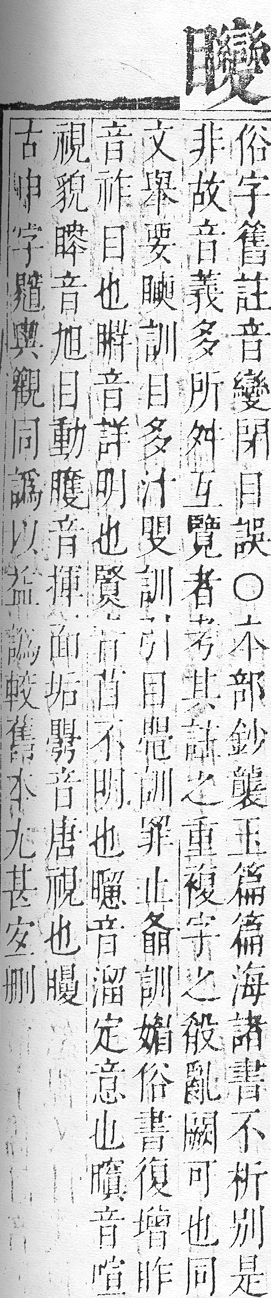 矕
俗字舊註音變閉目誤〇本部鈔襲玉篇篇海諸書不析別是
非故音義多所舛互覽者考其詁之重複字之殽亂闕可也同
文舉要䀹訓目多汁䀏訓引目訓罪止訓媚俗書復增昨
音祚目也音詳明也音不明也音溜定意也矌音喧
視貌音旭目動矆音揮面垢音唐視也䁢
古申字與觀同譌以益譌較舊本尢甚宜删